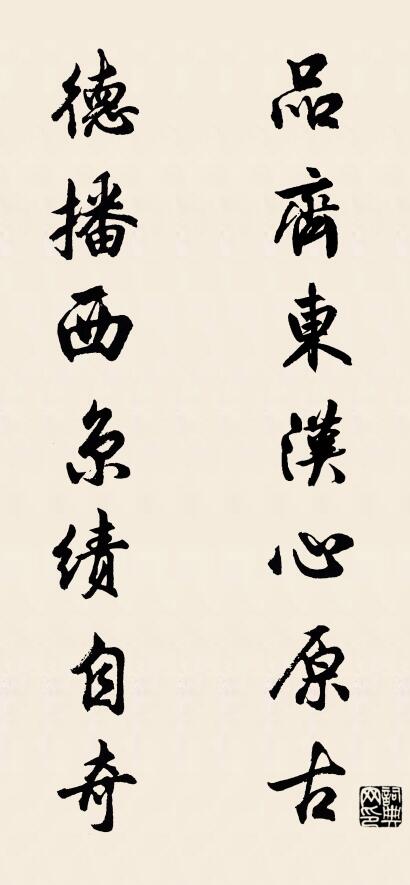 品齊東漢心原古
德播西京績自奇
詞典網印